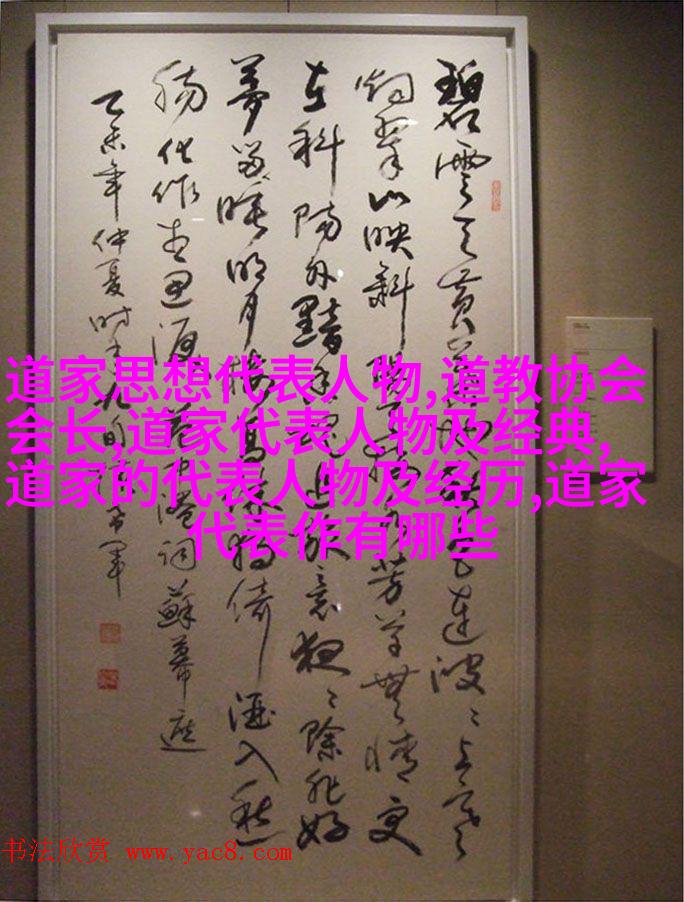 碧雲天黄葉地秋色連波〻上寒
烟翠山映斜陽天接水芳草無情更
在斜陽外黯鄉魂追旅意夜〻除非好
夢留人睡明月樓高休獨倚酒入愁
腸化作相思淚 范仲淹詞蘇幕遮
乙未年仲夏時年九旬 軍
道家思想代表人物,道教协会
会长,道家代表人物及经典,
道家的代表人物及经历,道家
代表作有哪些
书法欣赏 www.yac8.com